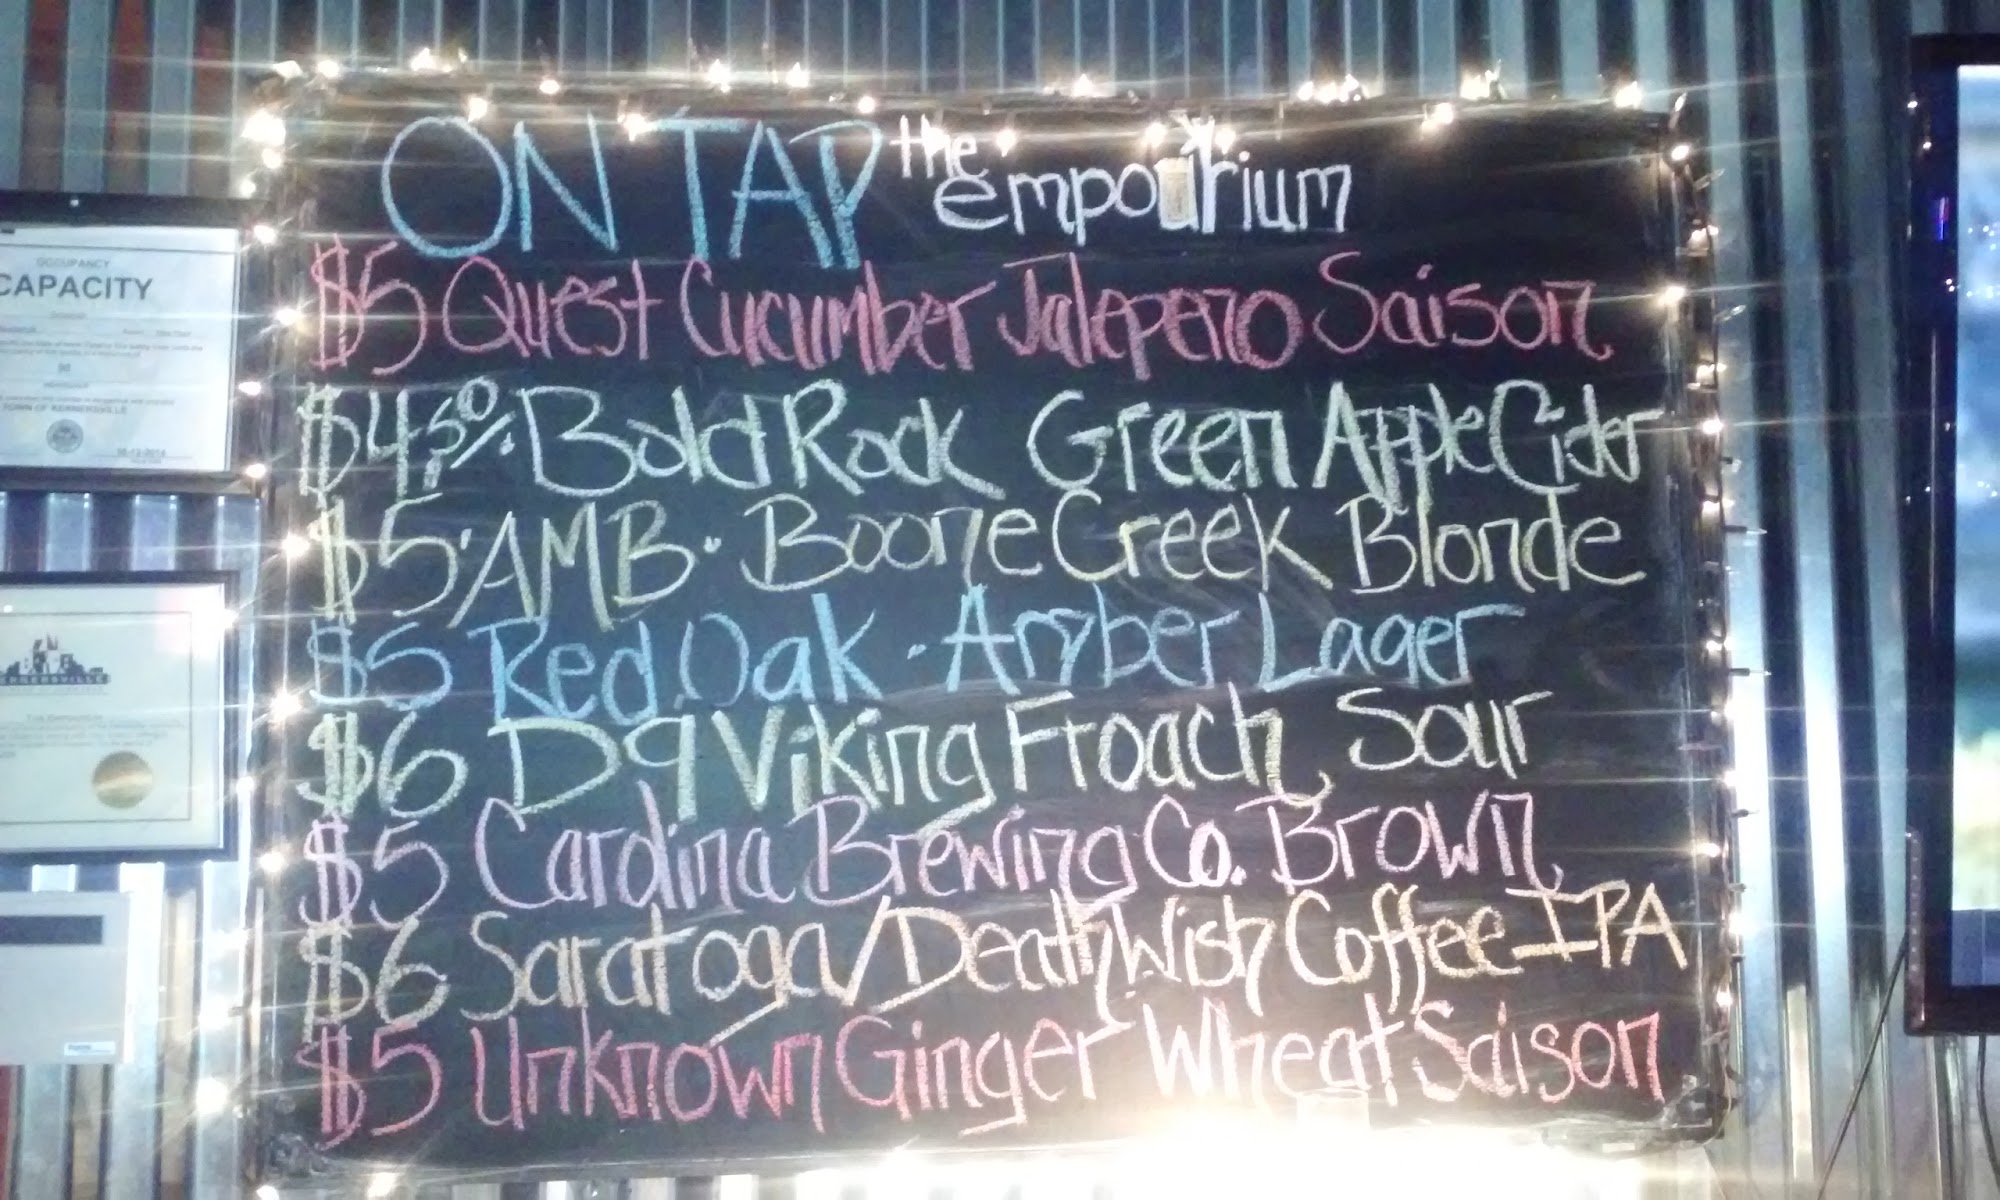 ON TAP the empourium
$5 Quest Cucumber Jalepeno Saison
$4.50 Bold Rock Green Apple Cider
$5 AMB. Boone Creek Blonde
$5 Red Oak . Amber Lager
$6 D9 Viking Froach Sour
$5 Carolina Brewing Co. Brown
$6 Saratoga/Death Wish Coffee IPA
$5 Unknown Ginger Wheat Saison
OCCUPANCY
CAPACITY
TOWN OF KERNERSVILLE